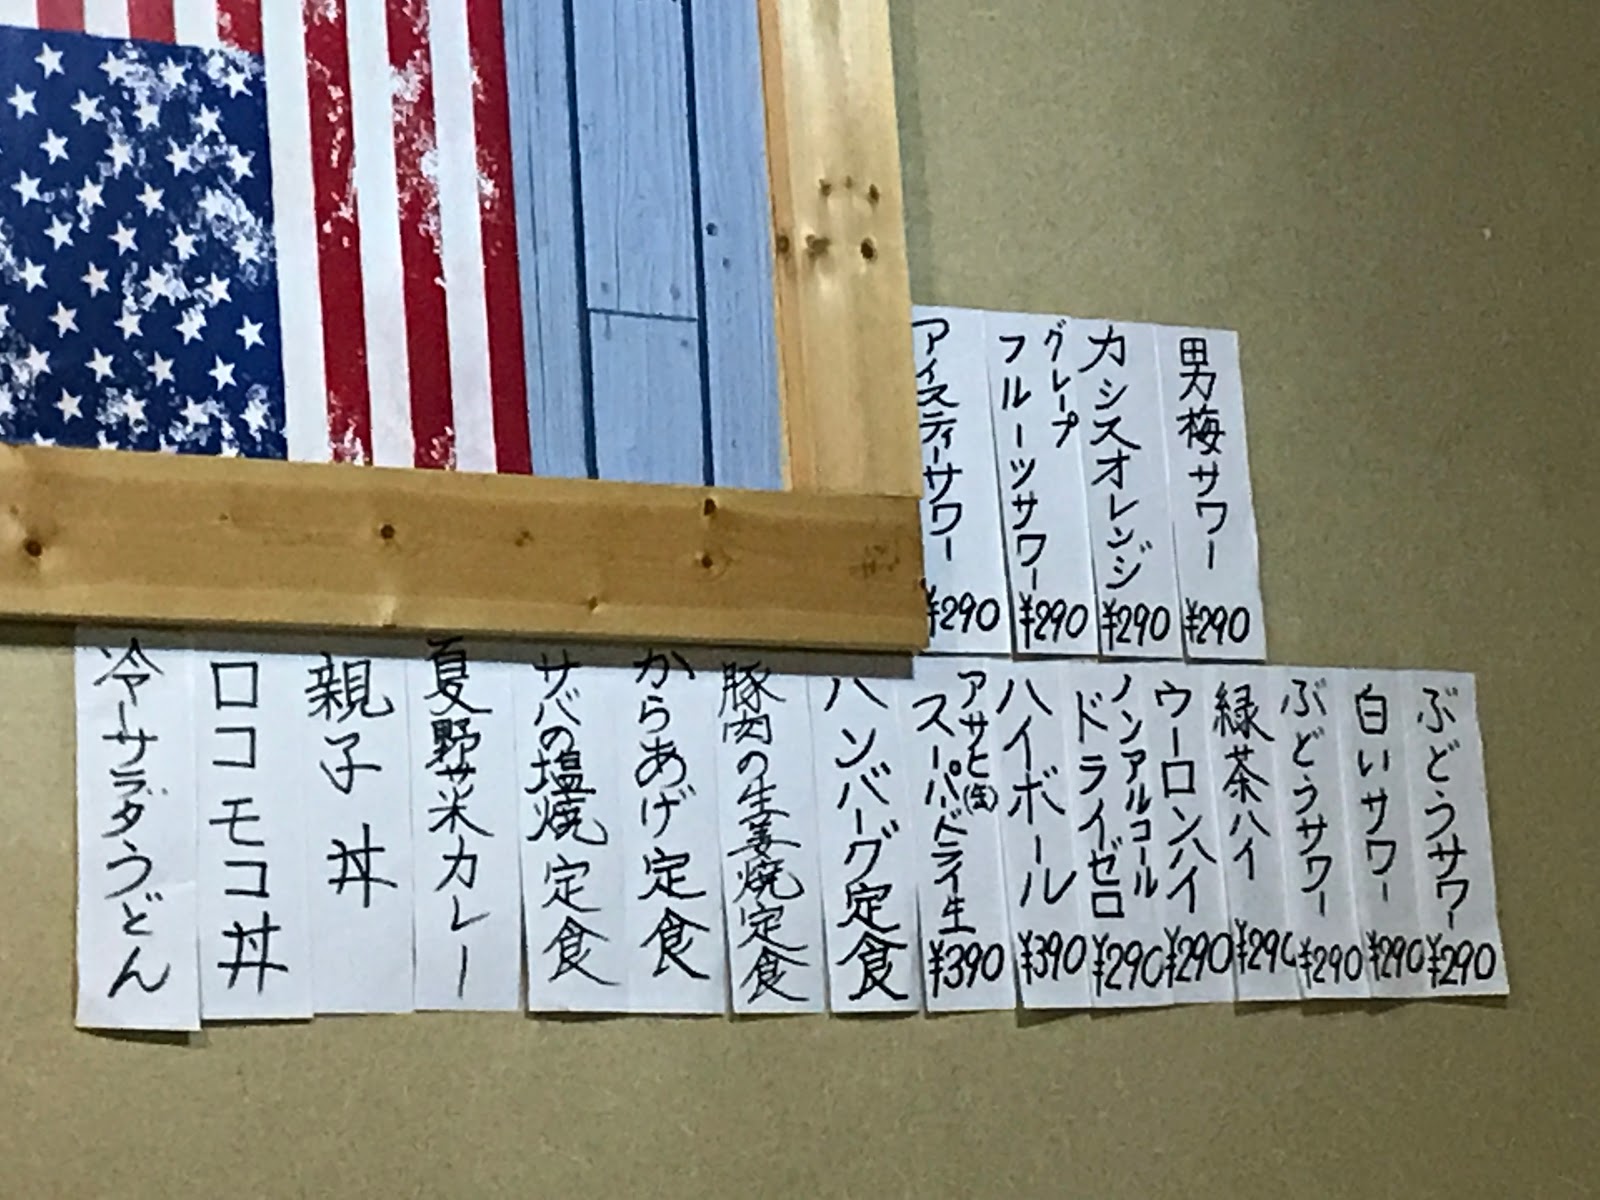 男梅サワー ¥290
カシスオレンジ ¥290
グレープ
フルーツサワー ¥290
アイスティーサワー ¥290
ぶどうサワー ¥290
白いサワー ¥290
ぶどうサワー ¥290
緑茶ハイ ¥290
ウーロンハイ ¥290
ノンアルコール
ドライゼロ ¥290
ハイボール ¥390
アサヒ(缶)
スーパードライ生 ¥390
ハンバーグ定食
豚肉の生姜焼定食
からあげ定食
サバの塩焼定食
夏野菜カレー
親子丼
ロコモコ丼
冷サラダうどん